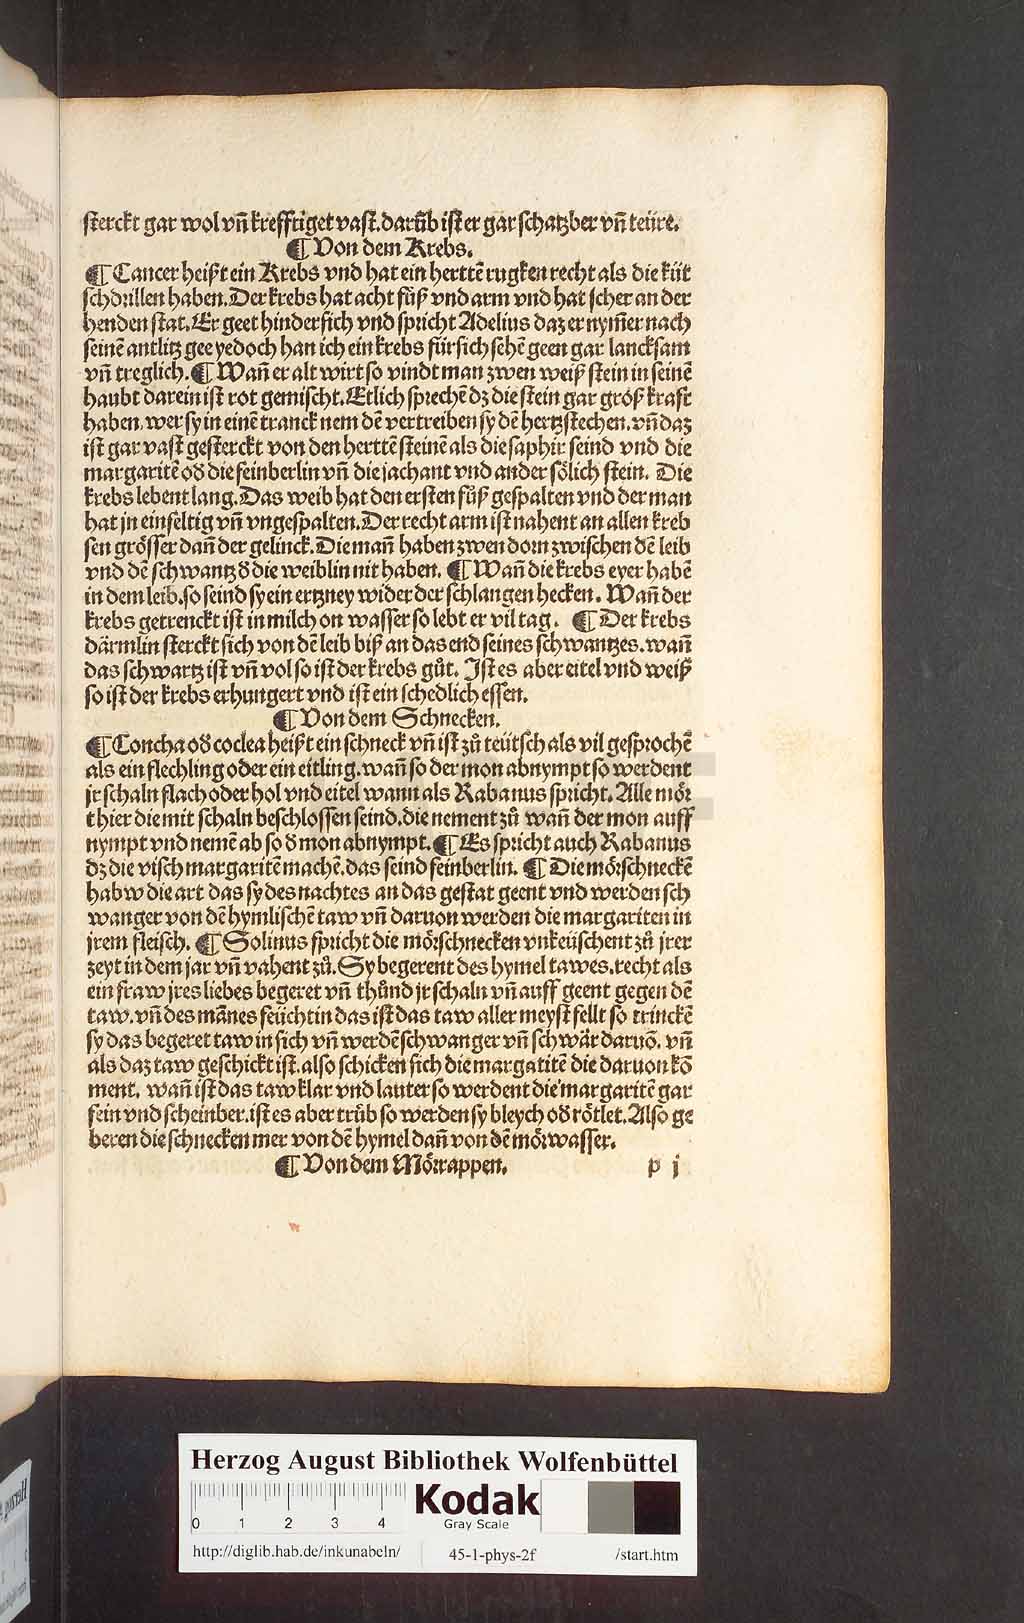 sterckt gar wol vn̄ krefftiget vast. darūb ist er gar schatzber vn̄ teüre.
¶ Von dem Krebs.
¶ Cancer heißt ein Krebs vnd hat ein herttē rugken recht als die küt
schdrillen haben. Der krebs hat acht füß vnd arm vnd hat scher an der
henden stat. Er geet hindersich vnd spricht Adelius daz er nym̄er nach
seinē antlitz gee yedoch han ich ein krebs fürsich sehē geen gar lancksam
vn̄ treglich. ¶ Wan̄ er alt wirt so vindt man zwen weiß stein in seinē
haubt darein ist rot gemischt. Etlich sprechē dz die stein gar groͤß kraft
haben. wer sy in einē tranck nem dē vertreiben sy dē hertzstechen. vn̄ daz
ist gar vast gesterckt von den herttē steinē als die saphir seind vnd die
margaritē od̄ die feinberlin vn̄ die jachant vnd ander soͤlich stein. Die
krebs lebent lang. Das weib hat den ersten fůß gespalten vnd der man
hat jn einfeltig vn̄ vngespalten. Der recht arm ist nahent an allen kreb
sen groͤsser dan̄ der gelinck. Die man̄ haben zwen dorn zwischen dē leib
vnd dē schwantz d̄ die weiblin nit haben. ¶ Wan̄ die krebs eyer habē
in dem leib. so seind sy ein ertzney wider der schlangen hecken. Wan̄ der
krebs getrenckt ist in milch on wasser so lebt er vil tag. ¶ Der krebs
därmlin sterckt sich von dē leib biß an das end seines schwantzes. wan̄
das schwartz ist vn̄ vol so ist der krebs gůt. Ist es aber eitel vnd weiß
so ist der krebs erhungert vnd ist ein schedlich essen.
¶ Von dem Schnecken.
¶ Concha od̄ coclea heißt ein schneck vn̄ ist zů teütsch als vil gesprochē
als ein flechling oder ein eitling. wan̄ so der mon abnympt so werdent
jr schaln flach oder hol vnd eitel wann als Rabanus spricht. Alle moͤr
thier die mit schaln beschlossen seind. die nement zů wan̄ der mon auff
nympt vnd nemē ab so d̄ mon abnympt. ¶ Es spricht auch Rabanus
dz die visch margaritē machē. das seind feinberlin. ¶ Die moͤrschneckē
habw die art das sy des nachtes an das gestat geent vnd werden sch
wanger von dē hymlischē taw vn̄ daruon werden die margariten in
jrem fleisch. ¶ Solinus spricht die moͤrschnecken vnkeüschent zů jrer
zeyt in dem jar vn̄ vahent zů. Sy begerent des hymel tawes. recht als
ein fraw jres liebes begeret vn̄ thůnd jr schaln vn̄ auff geent gegen dē
taw. vn̄ des mānes feüchtin das ist das taw aller meyst fellt so trinckē
sy das begeret taw in sich vn̄ werdē schwanger vn̄ schwär daruō. vn̄
als daz taw geschickt ist. also schicken sich die margatitē die daruon kō
ment. wan̄ ist das taw klar vnd lauter so werdent die margaritē gar
fein vnd scheinber. ist es aber trůb so werden sy bleych od̄ roͤtlet. Also ge
beren die schnecken mer von dē hymel dan̄ von dē moͤrwasser.
¶ Von dem Moͤrrappen. p j
Herzog August Bibliothek Wolfenbüttel
0 1 2 3 4
Kodak
Gray Scale
http://diglib.hab.de/inkunabeln/ 45-1-phys-2f /start.htm